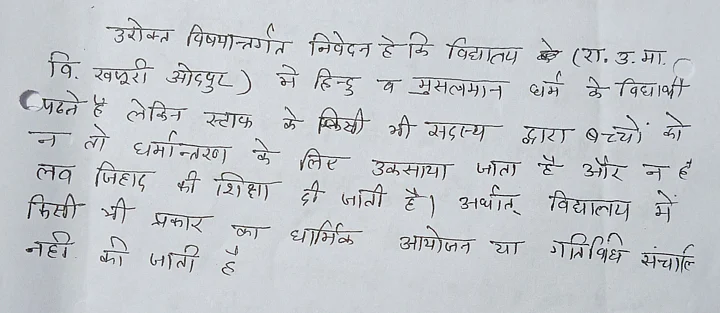 उरोक्त विषयान्तर्गत निवेदन है कि विद्यालय के (रा. उ. मा.
वि. खजूरी ओदपुर) में हिन्दु व मुसलमान धर्म के विद्यार्थी
पढते है लेकिन स्टाफ के किसी भी सदस्य द्वारा बच्चों को
न तो धर्मान्तरण के लिए उकसाया जाता है और न ही
लव जिहाद की शिक्षा दी जाती है। अर्थात् विद्यालय में
किसी भी प्रकार का धार्मिक आयोजन या गतिविधि संचालि
नही की जाती है